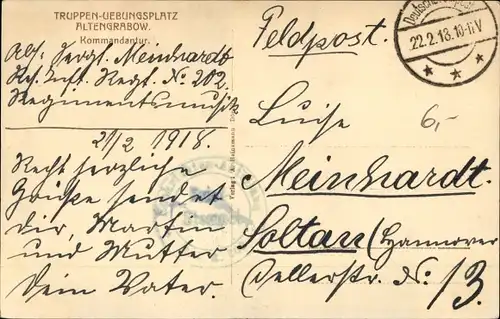 TRUPPEN-UEBUNGSPLATZ
ALTENGRABOW.
Kommandantur.
Abs. Sergt. Meinhardt
Res. Inft. Regt. No. 202.
Regimentsmusik
21/2 1918.
Recht herzliche
Grüße sendet
dir, Martin
und Mutter
Dein Vater.
Verlag
Feldpost.
22.2.18.10-11V
6,-
Luise
Meinhardt.
Soltau (Hannover
Cellerstr. No. 13.